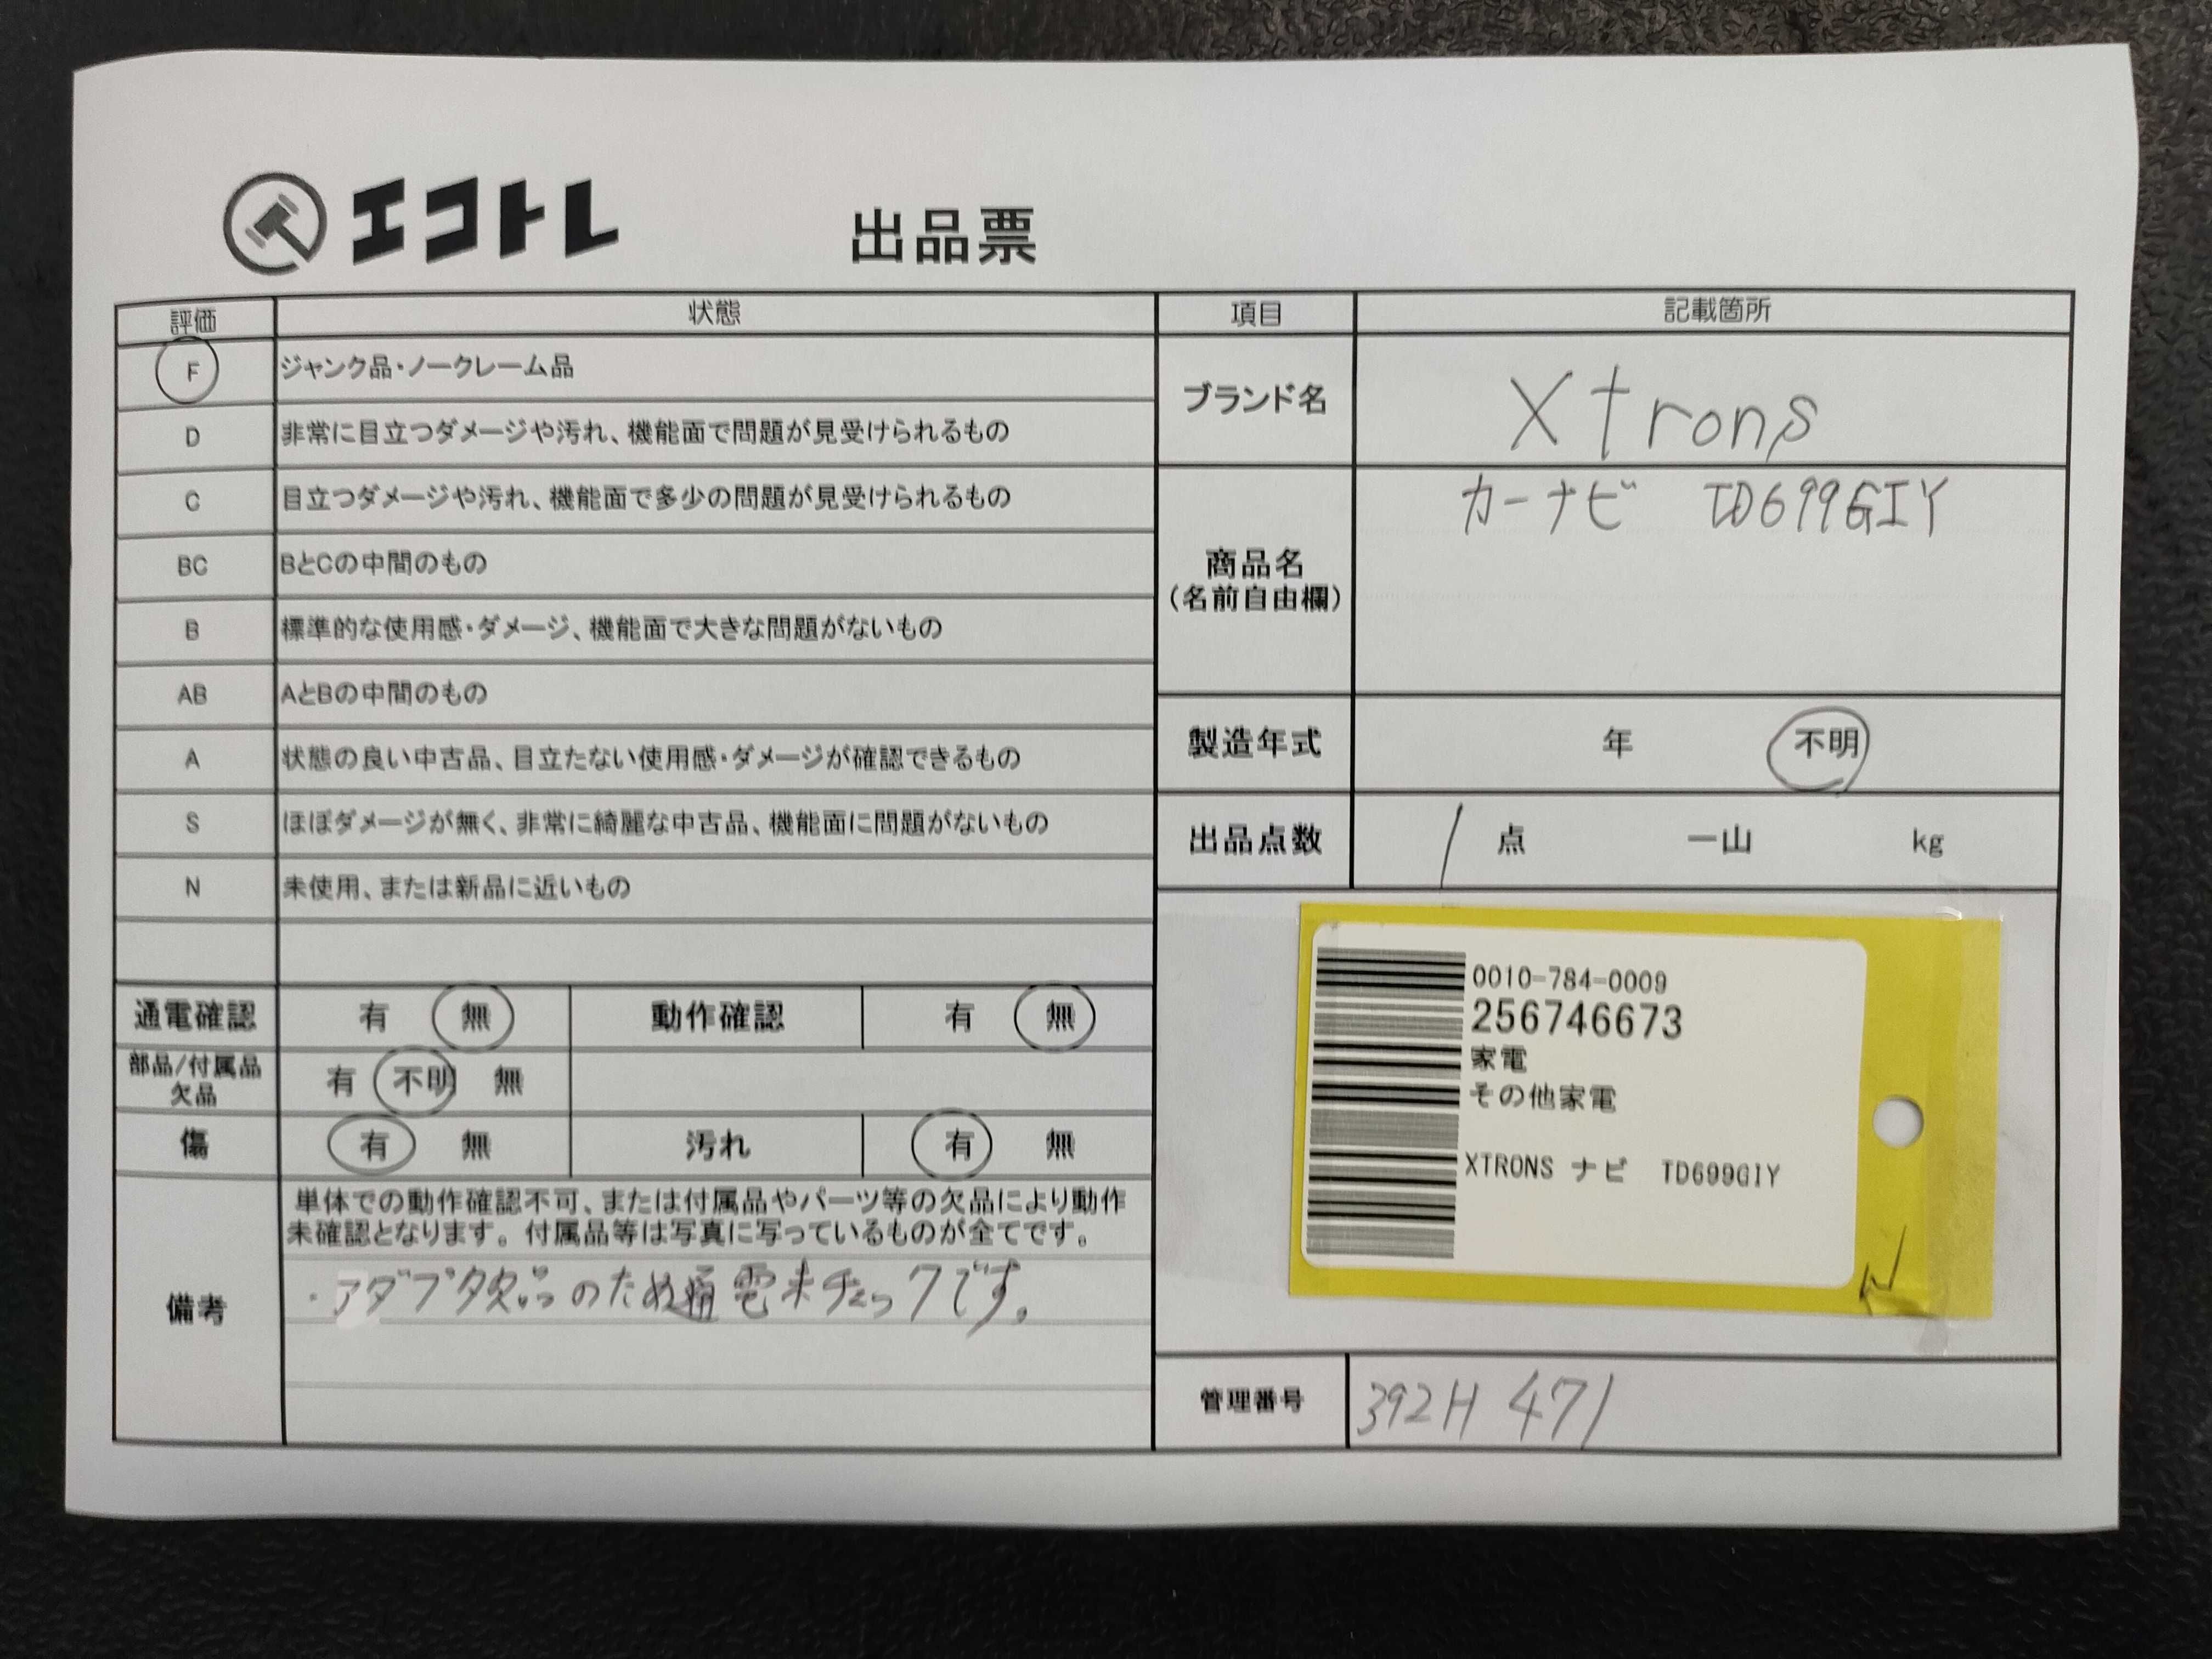 エコトレ
出品票
評価 状態
F ジャンク品・ノークレーム品
D 非常に目立つダメージや汚れ、機能面で問題が見受けられるもの
C 目立つダメージや汚れ、機能面で多少の問題が見受けられるもの
BC BとCの中間のもの
B 標準的な使用感・ダメージ、機能面で大きな問題がないもの
AB AとBの中間のもの
A 状態の良い中古品、目立たない使用感・ダメージが確認できるもの
S ほぼダメージが無く、非常に綺麗な中古品、機能面に問題がないもの
N 未使用、または新品に近いもの
通電確認 有 無 動作確認 有 無
部品/付属品
欠品
有 不明 無
傷 有 無 汚れ 有 無
備考
単体での動作確認不可、または付属品やパーツ等の欠品により動作
未確認となります。付属品等は写真に写っているものが全てです。
・アダプタ欠品のため通電未チェックです。
項目 記載箇所
ブランド名 Xtrons
商品名
(名前自由欄)
カーナビ TD699GIY
製造年式 年 不明
出品点数 1 点 一山 kg
0010-784-0009
256746673
家電
その他家電
XTRONS ナビ TD699GIY
管理番号 392H 471